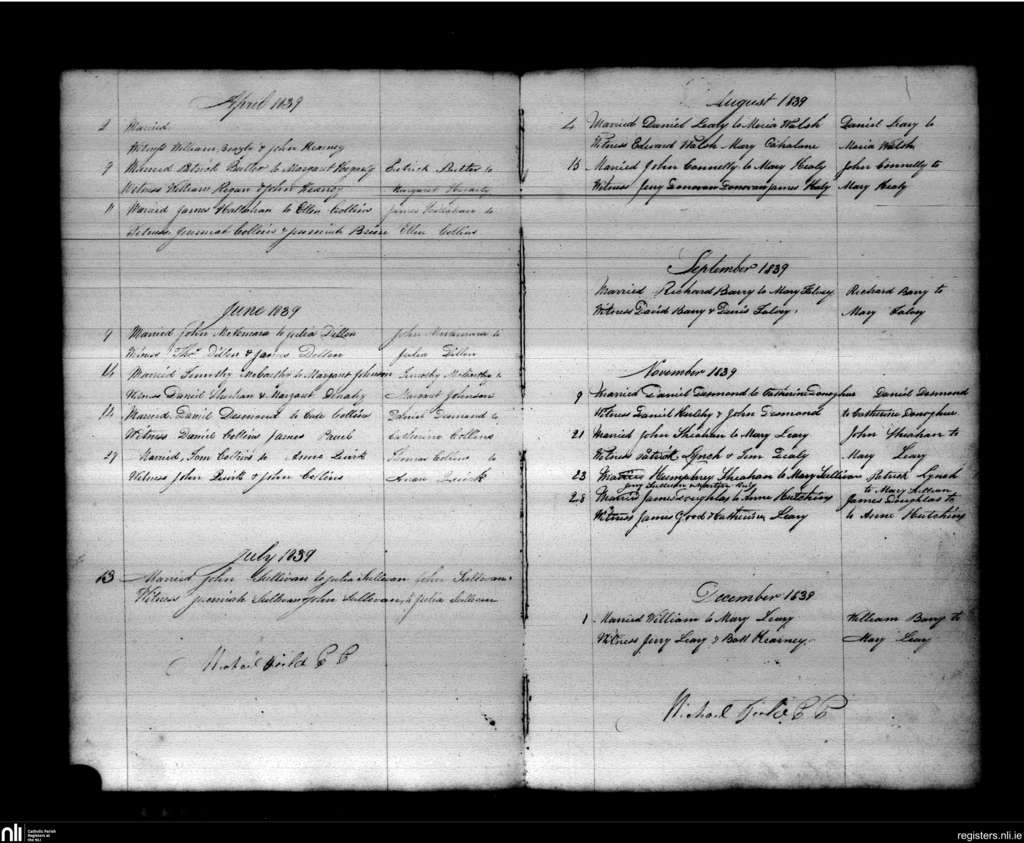 April 1839
2 Married
Witness William & John Kearney
9 Married Patrick Butler to Margaret Hegarty Patrick Butler to
Witness William Regan & John Kearney Margaret Hegarty
11 Married James Hallahan to Ellen Collins James Hallahan to
Witness Jeremiah Collins & Jeremiah Ellen Collins
June 1839
9 Married John McNemara to Julia Dillon John McNamara to
Witness Thos. Dillon & James Dillon Julia Dillon
Married Timothy McCarthy to Margaret Johnson Timothy McCarthy to
Witness Daniel & Margaret Margaret Johnson
Married Daniel Desmond to Collins Daniel Desmond to
Witness Daniel Collins James Catherine Collins
29 Married Tom Collins to Anne Quirk Thomas Collins to
Witness John Quirk & John Collins Quirk
July 1839
13 Married John Sullivan to Julia Sullivan John Sullivan
Witness Jeremiah Sullivan & John Sullivan to Julia Sullivan
Michael C C
August 1839
4 Married Daniel Leary to Maria Walsh Daniel Leary to
Witness Edward Walsh Mary Cahalane Maria Walsh
15 Married John Connelly to Mary Healy John Connelly to
Witness Jerry Donovan Donovan James Healy Mary Healy
September 1839
Married Richard Barry to Mary Falvey Richard Barry to
Witness David Barry & Denis Falvey Mary Falvey
November 1839
9 Married Daniel Desmond to Catherine Donoghue Daniel Desmond
Witness Daniel Herlihy & John Desmond to Catherine Donoghue
21 Married John Sheahan to Mary Leary John Sheahan to
Witness Patrick Lynch & Tim Mary Leary
23 Married Humphrey Sheahan to Mary Sullivan Patrick Lynch
Jerry Sullivan to Mary Sullivan
28 Married James Douglas to Anne Hutchins James Douglas to
Witness James Good & Catherine Leary to Anne Hutchins
December 1839
1 Married William to Mary Leary William Barry to
Witness Jerry Leary & Batt Kearney Mary Leary
Michael C C
nli Catholic Parish
Registers at
the NLI
registers.nli.ie